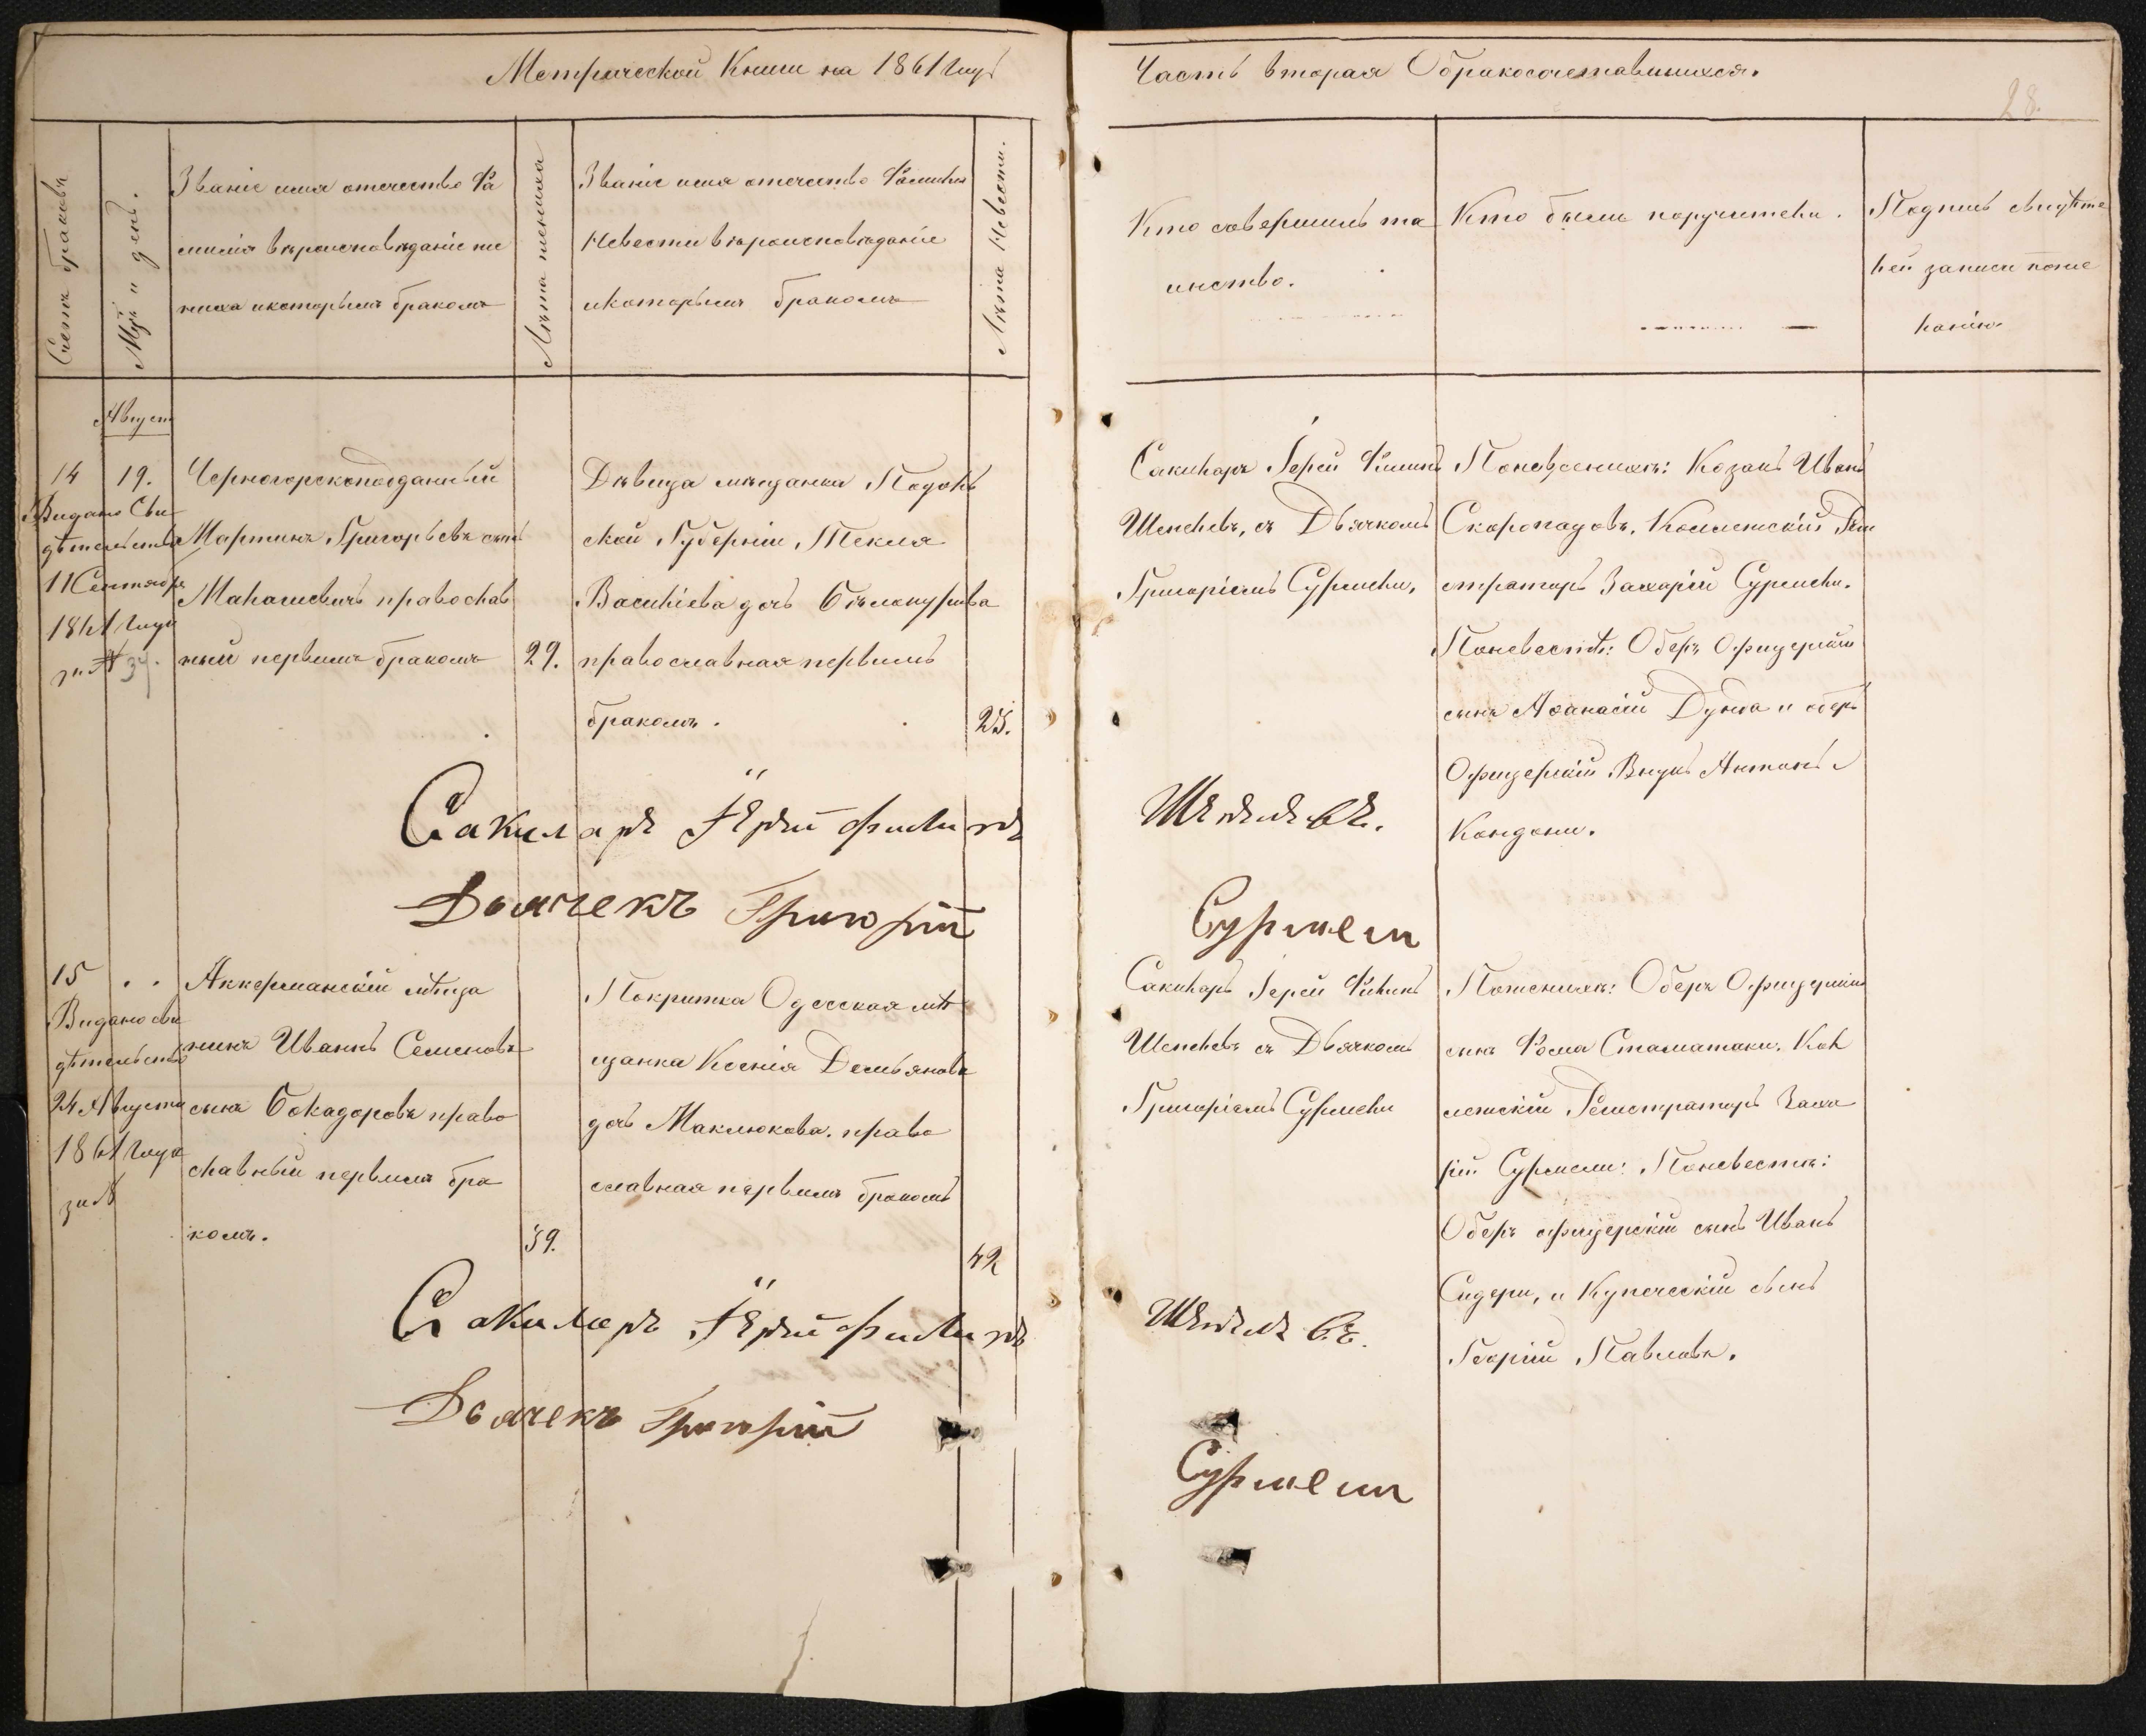 Метрической Книги на 1861 годъ
Часть вторая О бракосочетавшихся.
28.
Счетъ браковъ
Мцъ и день.
Званіе имя отечество Фа
милія вѣроисповѣданіе же
ниха и которымъ бракомъ
Лѣта жениха
Званіе имя отечество Фамилія
Невести вѣроисповѣданіе
и которымъ бракомъ
Лѣта Невести.
Кто совершилъ та
инство.
Кто были поручители.
Подпись свидѣте
лей записи по же
ланію
Август
14
19.
Видано Сви
дѣтельство
11 Сентября
1861 года
за №
Черногорскоподданный
Мартинъ Григорьевъ сынъ
Малашевичъ православ
ный первымъ бракомъ
29.
Дѣвица мѣщанка Подоль
ской Губерніи Текля
Василіева дочь Бѣлокурива
православная первымъ
бракомъ.
25.
Сакиларъ Іерей Филипъ
Шепелевъ, съ Дьячкомъ
Григоріемъ Сурмели,
По женихѣ: Козакъ Иванъ
Скоропадовъ, Коллежскій Реги
страторъ Захарій Сурмели.
По невестѣ: Оберъ Офицерскій
сынъ Аѳанасій Дунва и оберъ
Офицерскій Внукъ Антонъ
Кондони.
Сакиларъ Іерей Филипъ
Шепелевъ.
Дьячекъ Григорій
Сурмели
15
Видано сви
дѣтельство
24 Августа
1861 года
за №
Аккерманскій мѣща
нинъ Иванъ Семеновъ
сынъ Бокадоровъ право
славный первымъ бра
комъ.
39.
Покритка Одесская мѣ
щанка Ксенія Демьянова
дочь Маклюкова. право
славная первымъ бракомъ
42
Сакиларъ Іерей Филипъ
Шепелевъ съ Дьячкомъ
Григоріемъ Сурмели
По женихѣ: Оберъ Офицерскій
сынъ Фома Стаматаки, Кол
лежскій Регистраторъ Заха
рій Сурмели: По невестѣ:
Оберъ офицерскій сынъ Иванъ
Сидери, и Купеческій сынъ
Георгій Павловъ.
Сакиларъ Іерей Филипъ
Шепелевъ.
Дьячекъ Григорій
Сурмели